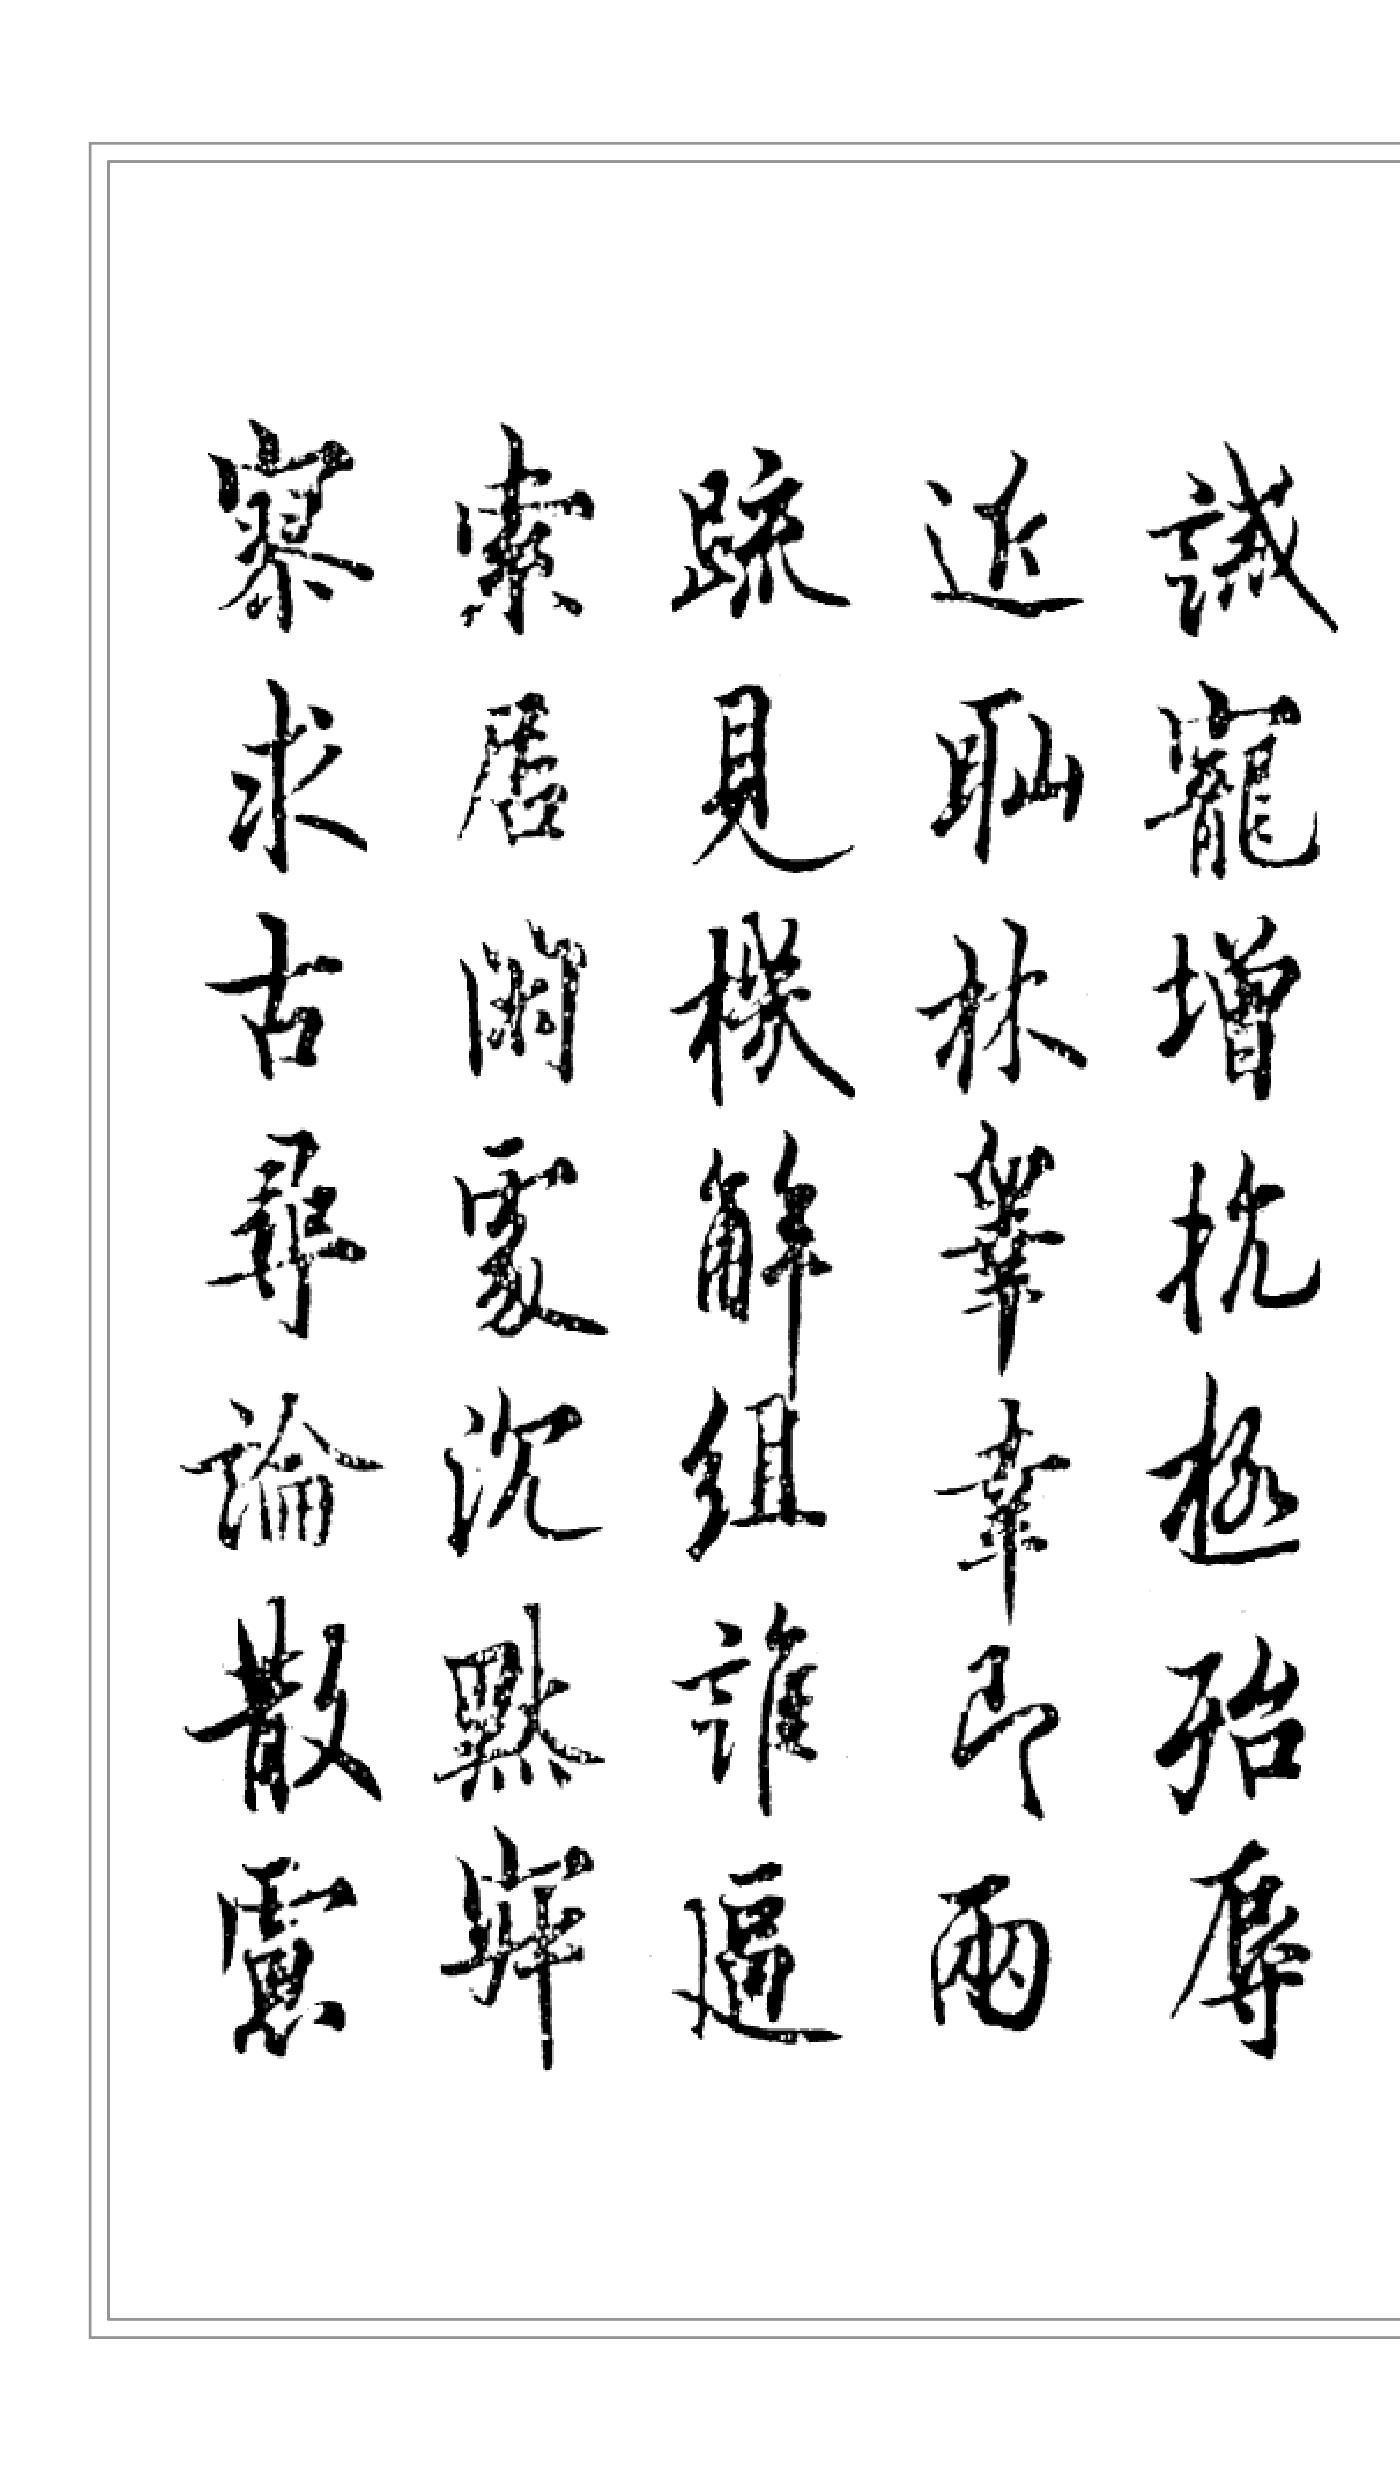 誡寵增抗極殆辱
近恥林皋幸即兩
疏見機解組誰逼
索居閑處沉默寂
寥求古尋論散慮